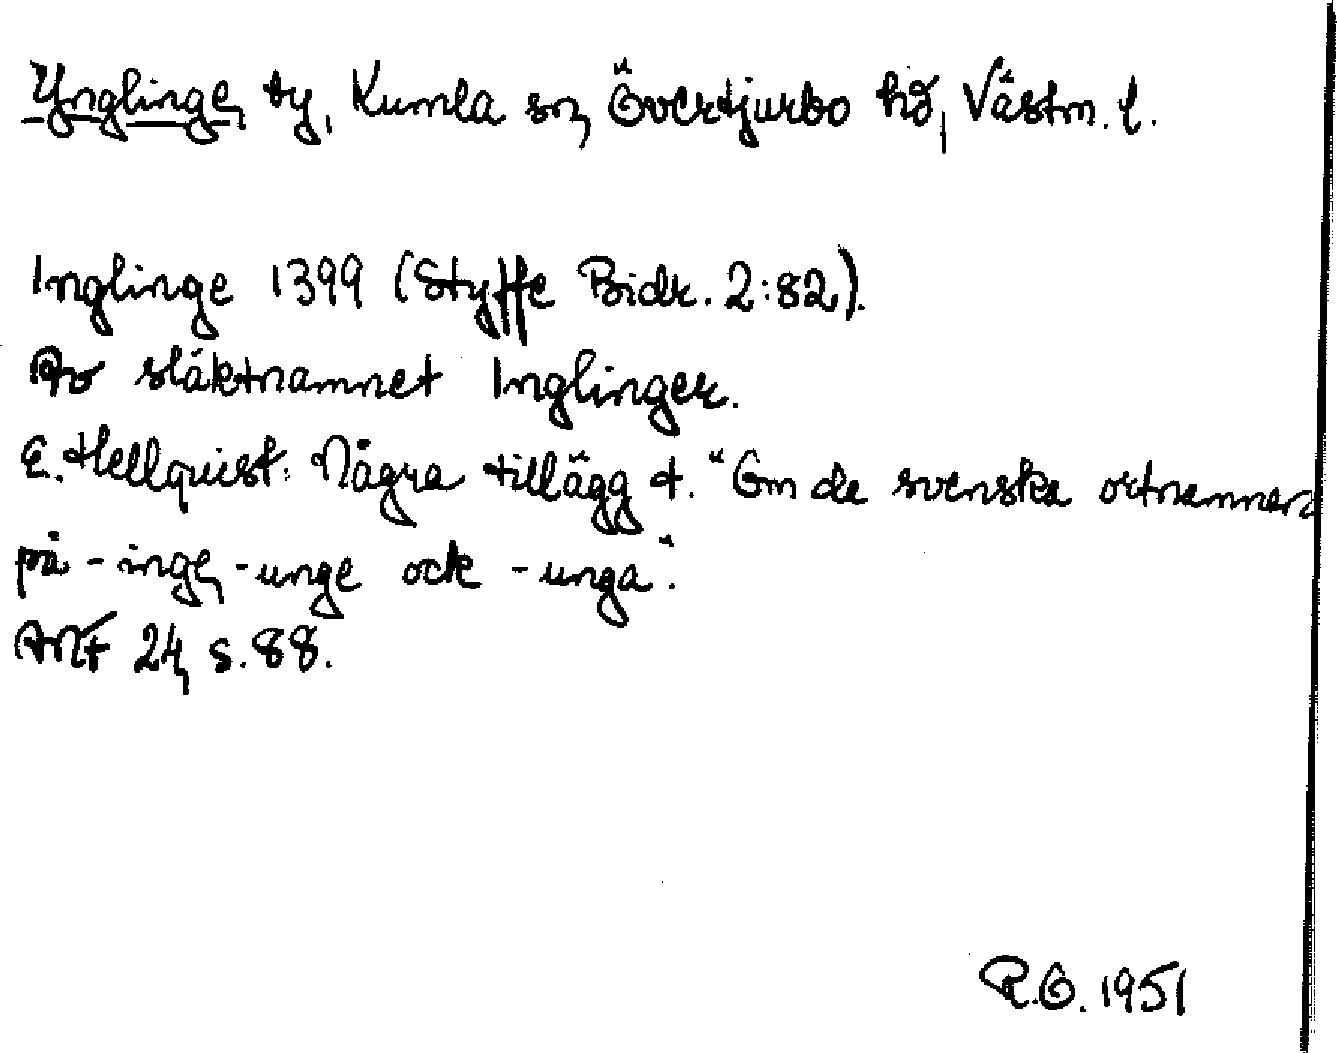 Ynglinge, by, Kumla sn, Övertjurbo hd, Västm. l.
Inglinge 1399 (Styffe Bidr. 2:82).
Av släktnamnet Inglinger.
E. Hellquist: Några tillägg t. "Om de svenska ortnamnen
på -inge, -unge ock -unga".
ANF 24, s. 88.
R.O. 1951